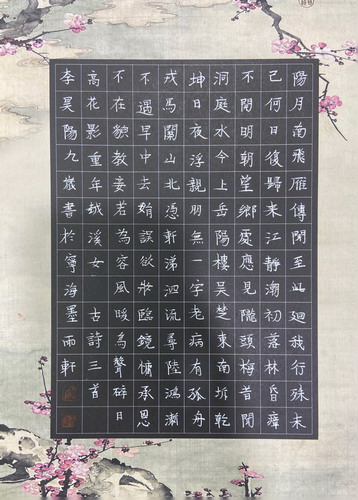 陽月南飛雁傳聞至此迴我行殊未
已何日復歸來江靜潮初落林昏瘴
不開明朝望鄉處應見隴頭梅昔聞
洞庭水今上岳陽樓吳芝東南坼乾
坤日夜浮親朋無一字老病有孤舟
戎馬關山北憑軒涕泗流尋陸鴻漸
不遇早中去娟誤欲妝臨鏡慵承恩
不在貌教妾若為容風暖鳥聲碎日
高花影重年越溪女 古詩三首
李昊陽九歲書於寧海墨雨軒